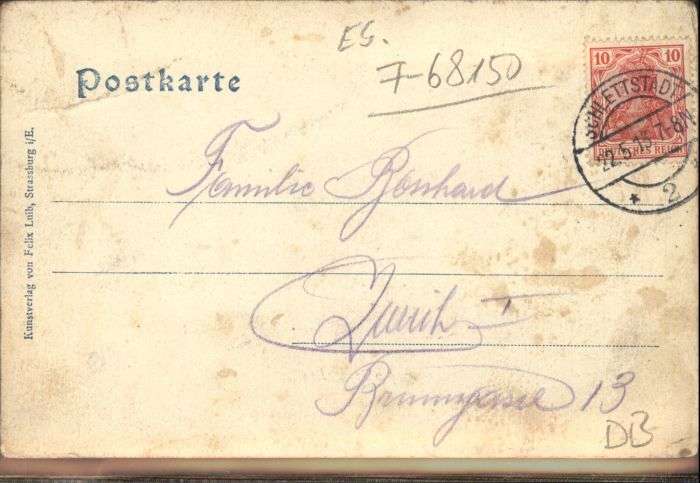 ES.
F-68150
Postkarte
10 10
DEUTSCHES REICH
SCHLETTSTADT
22.5.15.7-8N
* 2
Familie Bosshard
Zürich I
Brunngasse 13
DB
Kunstverlag von Felix Luib, Strassburg i/E.